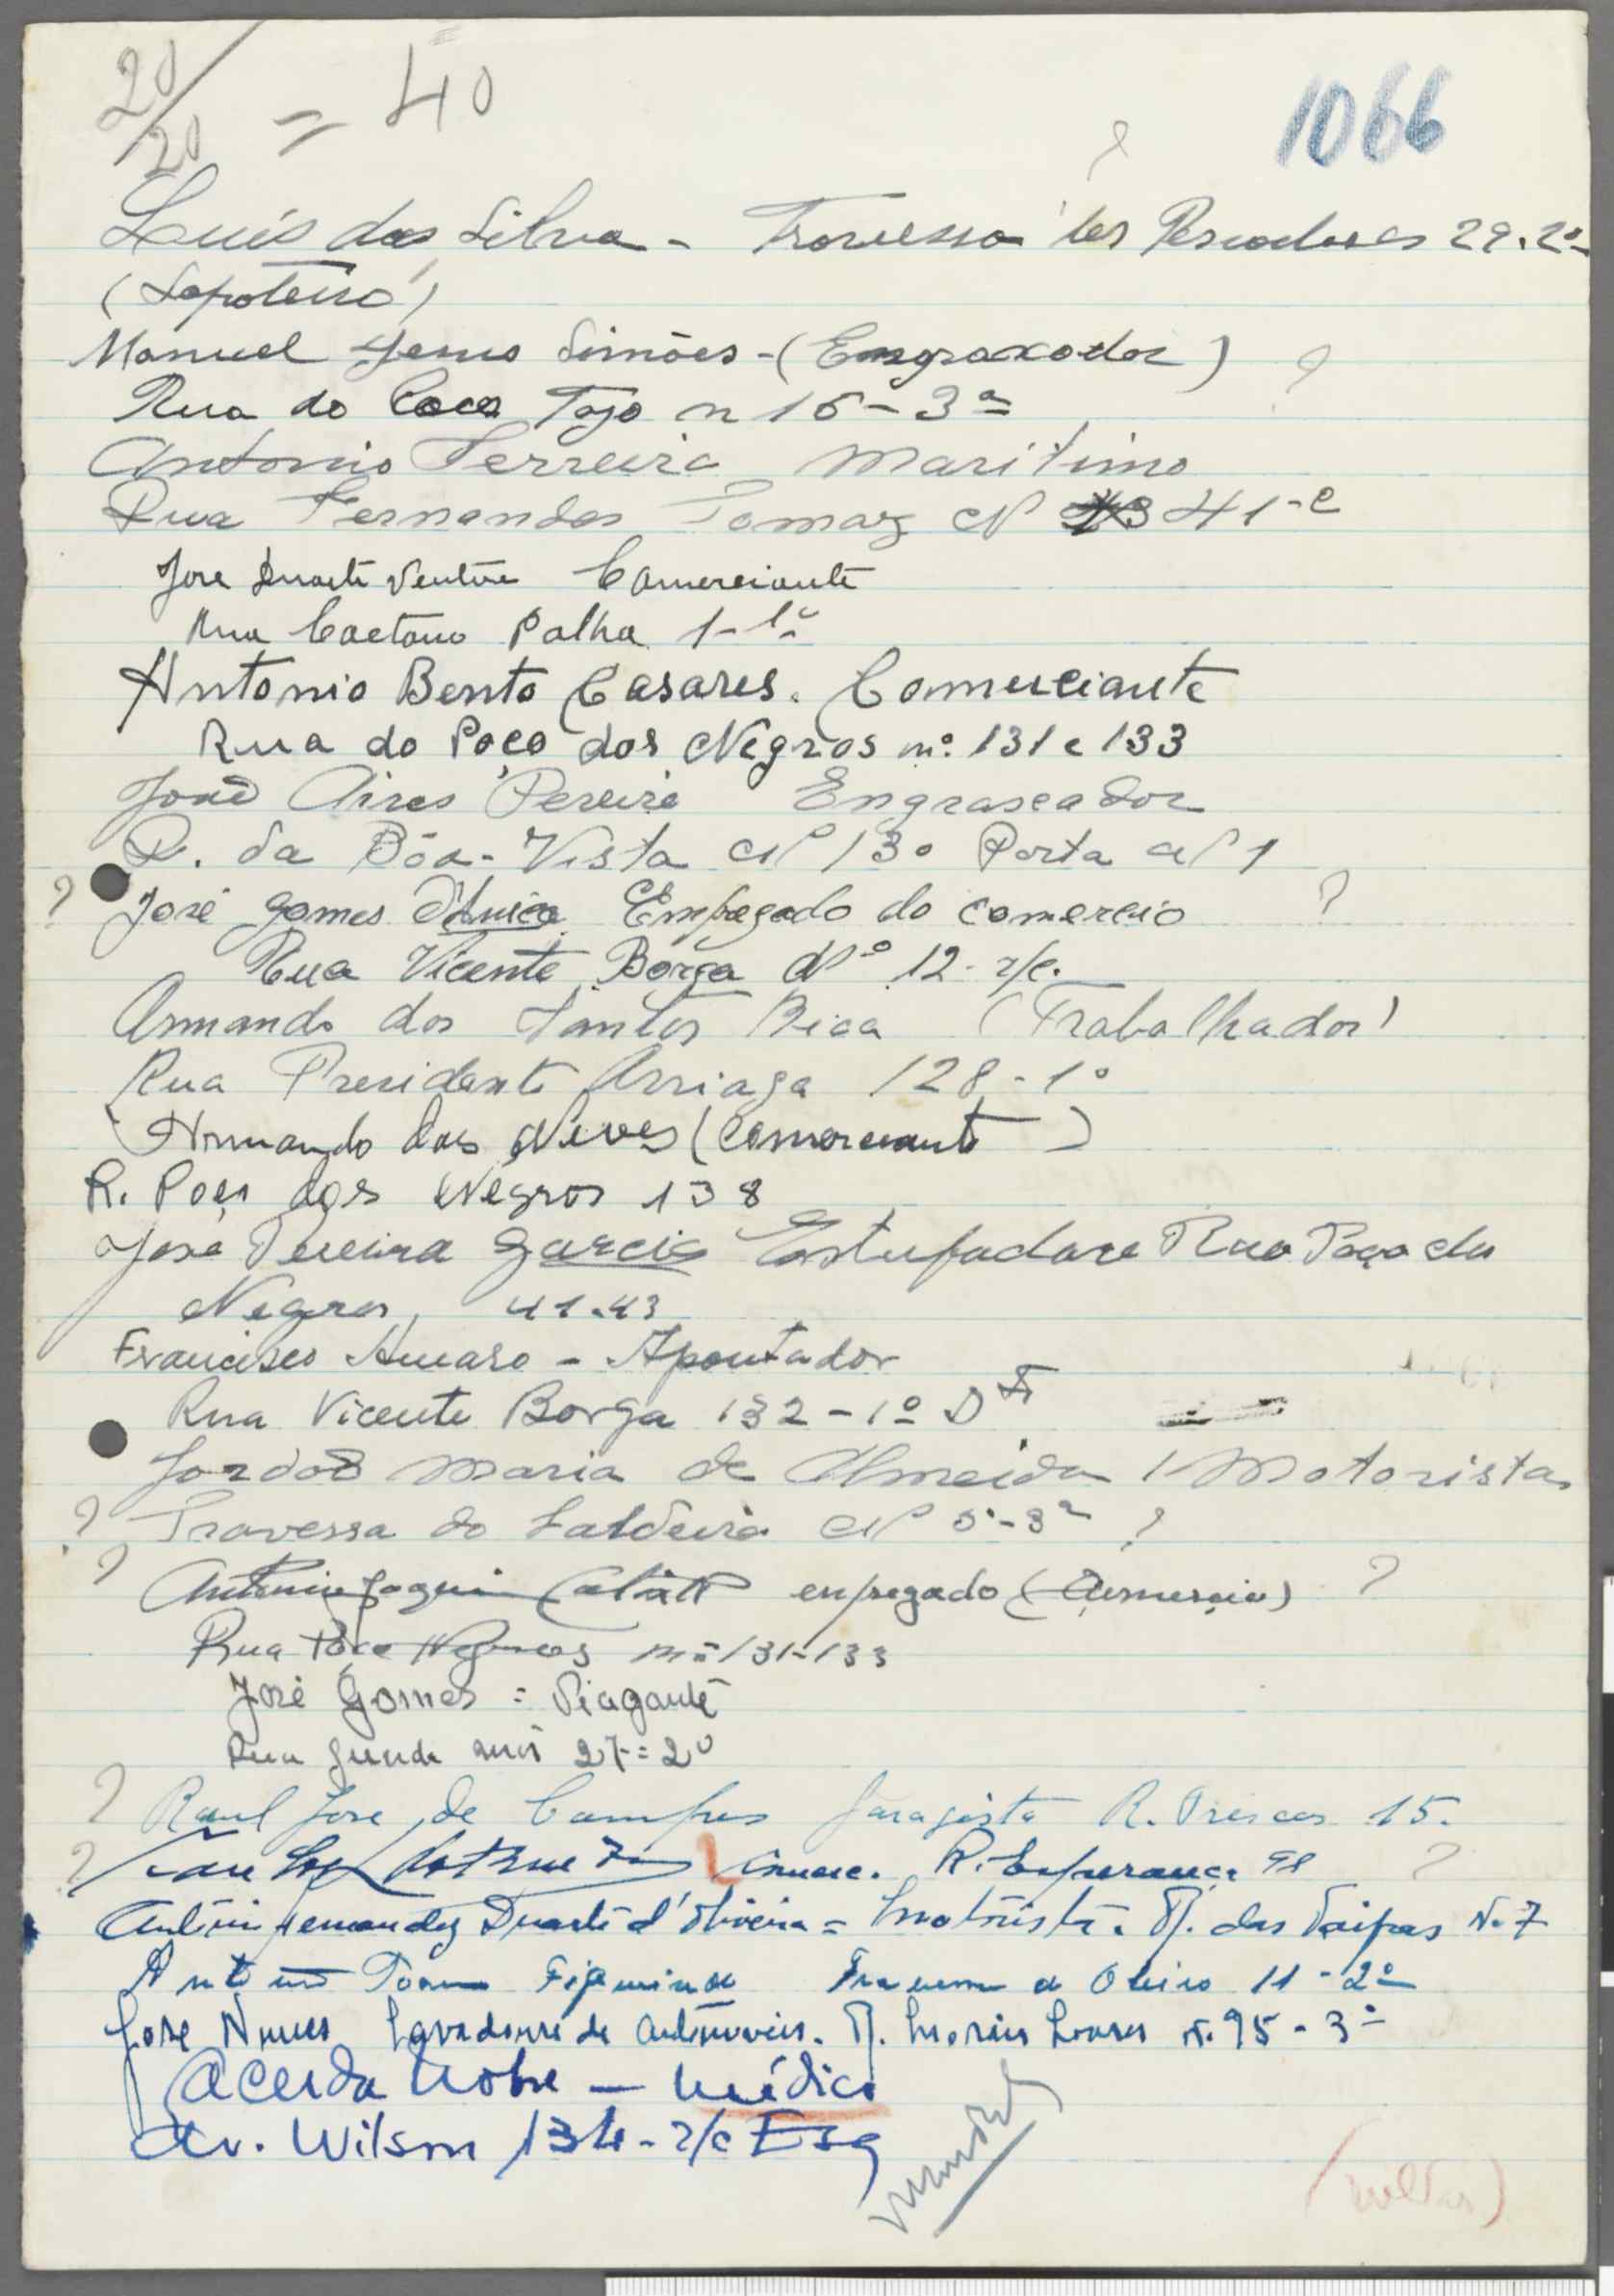 20/20 = 40
1066
?
Luís da Silva - Travessa dos Pescadores 29.2º
(Sapoteiro)
Manuel Jesus Simões - (Engraxador) ?
Rua do Tojo n 16 - 3º
Antonio Ferreira Maritimo
Rua Fernandes Tomaz Nº 41-
Jose Duarte Ventura Comerciante
Rua Caetano Palha 1-1º
Antonio Bento Casares. Comerciante
Rua do Poço dos Negros nº 131 e 133
José Aires Pereira Engraseador
R. da Bôa-Vista Nº 130 Porta Nº 1
? José Gomes Empegado do comercio ?
Rua Vicente Borga Nº 12-r/c.
Armando dos Santos Bica (Trabalhador)
Rua Presidente Arriaga 128-1º
Armando das Neves (Comerciante)
R. Poço dos Negros 138
José Pereira Garcia Estufadore Rua Poço dos
Negros, 41-43
Francisco Amaro - Apontador
Rua Vicente Borga 132-1º Dto
Jordão Maria de Almeida Motorista
? Travessa do Nº 5-3º ?
? Antonio Joaquim enpregado (Comercio) ?
Rua Poço Negros nº 131-133
José Gomes =
Rua 27=2º
? Raul Jose de Campos Garagista R. 15.
? Comerc. R. Esperança 98 ?
António Fernandes Duarte d'Oliveira = Motorista. T. das Taipas N. 7
Antonio Figueirôa Travessa Oleiro 11-2º
Jose Nunes Lavadore de automoveis. T. Soares nº 95-3º
Acerda Nobre - Médico
Av. Wilson 134-r/c Esq
(voltar)